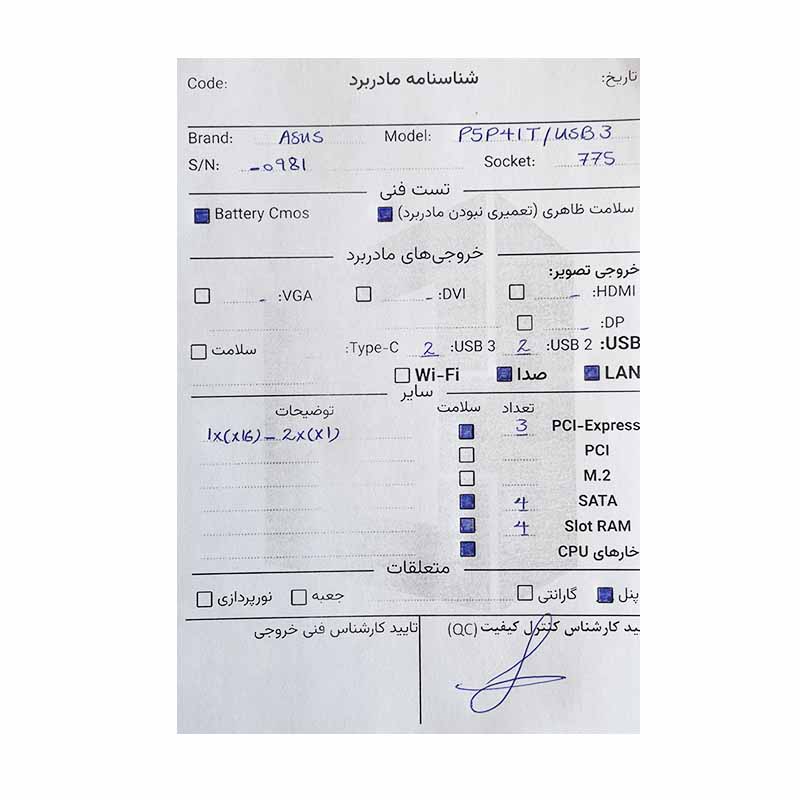 تاریخ: شناسنامه مادربرد Code:
Brand: ASUS Model: P5P41T/USB3
S/N: -0981 Socket: 775
تست فنی
سلامت ظاهری (تعمیری نبودن مادربرد) Battery Cmos
خروجی‌های مادربرد
خروجی تصویر:
HDMI: - DVI: - VGA: -
DP: -
USB: USB 2: 2 USB 3: 2 Type-C: سلامت
LAN صدا Wi-Fi
سایر
تعداد سلامت توضیحات
PCI-Express 3 1x(x16) - 2x(x1)
PCI
M.2
SATA 4
Slot RAM 4
خارهای CPU
متعلقات
پنل گارانتی جعبه نورپردازی
ید کارشناس کنترل کیفیت (QC) تایید کارشناس فنی خروجی